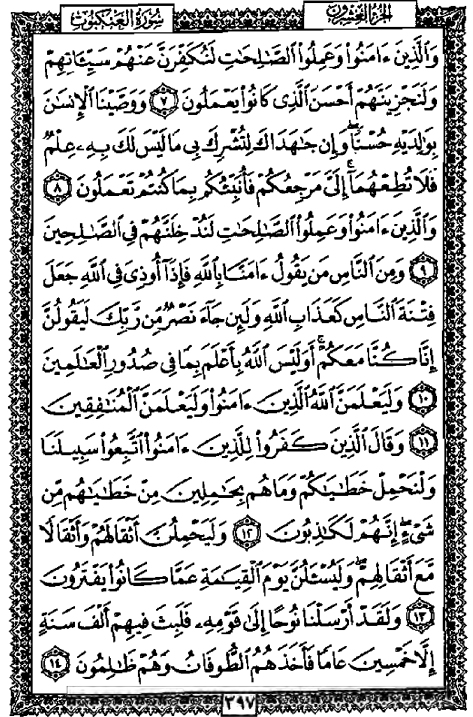 سُورَةُ العَنكَبُوتِ
الجُزءُ العِشرُونَ
وَالَّذِينَ ءَامَنُوا۟ وَعَمِلُوا۟ الصَّٰلِحَٰتِ لَنُكَفِّرَنَّ عَنْهُمْ سَيِّـَٔاتِهِمْ
وَلَنَجْزِيَنَّهُمْ أَحْسَنَ الَّذِى كَانُوا۟ يَعْمَلُونَ ٧ وَوَصَّيْنَا الْإِنسَٰنَ
بِوَٰلِدَيْهِ حُسْنًا ۖ وَإِن جَٰهَدَاكَ لِتُشْرِكَ بِى مَا لَيْسَ لَكَ بِهِۦ عِلْمٌ
فَلَا تُطِعْهُمَآ ۚ إِلَىَّ مَرْجِعُكُمْ فَأُنَبِّئُكُم بِمَا كُنتُمْ تَعْمَلُونَ ٨
وَالَّذِينَ ءَامَنُوا۟ وَعَمِلُوا۟ الصَّٰلِحَٰتِ لَنُدْخِلَنَّهُمْ فِى الصَّٰلِحِينَ
٩ وَمِنَ النَّاسِ مَن يَقُولُ ءَامَنَّا بِاللَّهِ فَإِذَآ أُوذِىَ فِى اللَّهِ جَعَلَ
فِتْنَةَ النَّاسِ كَعَذَابِ اللَّهِ وَلَئِن جَآءَ نَصْرٌ مِّن رَّبِّكَ لَيَقُولُنَّ
إِنَّا كُنَّا مَعَكُمْ ۚ أَوَلَيْسَ اللَّهُ بِأَعْلَمَ بِمَا فِى صُدُورِ الْعَٰلَمِينَ
١٠ وَلَيَعْلَمَنَّ اللَّهُ الَّذِينَ ءَامَنُوا۟ وَلَيَعْلَمَنَّ الْمُنَٰفِقِينَ
١١ وَقَالَ الَّذِينَ كَفَرُوا۟ لِلَّذِينَ ءَامَنُوا۟ اتَّبِعُوا۟ سَبِيلَنَا
وَلْنَحْمِلْ خَطَٰيَٰكُمْ وَمَا هُم بِحَٰمِلِينَ مِنْ خَطَٰيَٰهُم مِّن
شَىْءٍ ۖ إِنَّهُمْ لَكَٰذِبُونَ ١٢ وَلَيَحْمِلُنَّ أَثْقَالَهُمْ وَأَثْقَالًا
مَّعَ أَثْقَالِهِمْ ۖ وَلَيُسْـَٔلُنَّ يَوْمَ الْقِيَٰمَةِ عَمَّا كَانُوا۟ يَفْتَرُونَ
١٣ وَلَقَدْ أَرْسَلْنَا نُوحًا إِلَىٰ قَوْمِهِۦ فَلَبِثَ فِيهِمْ أَلْفَ سَنَةٍ
إِلَّا خَمْسِينَ عَامًا فَأَخَذَهُمُ الطُّوفَانُ وَهُمْ ظَٰلِمُونَ ١٤
٣٩٧